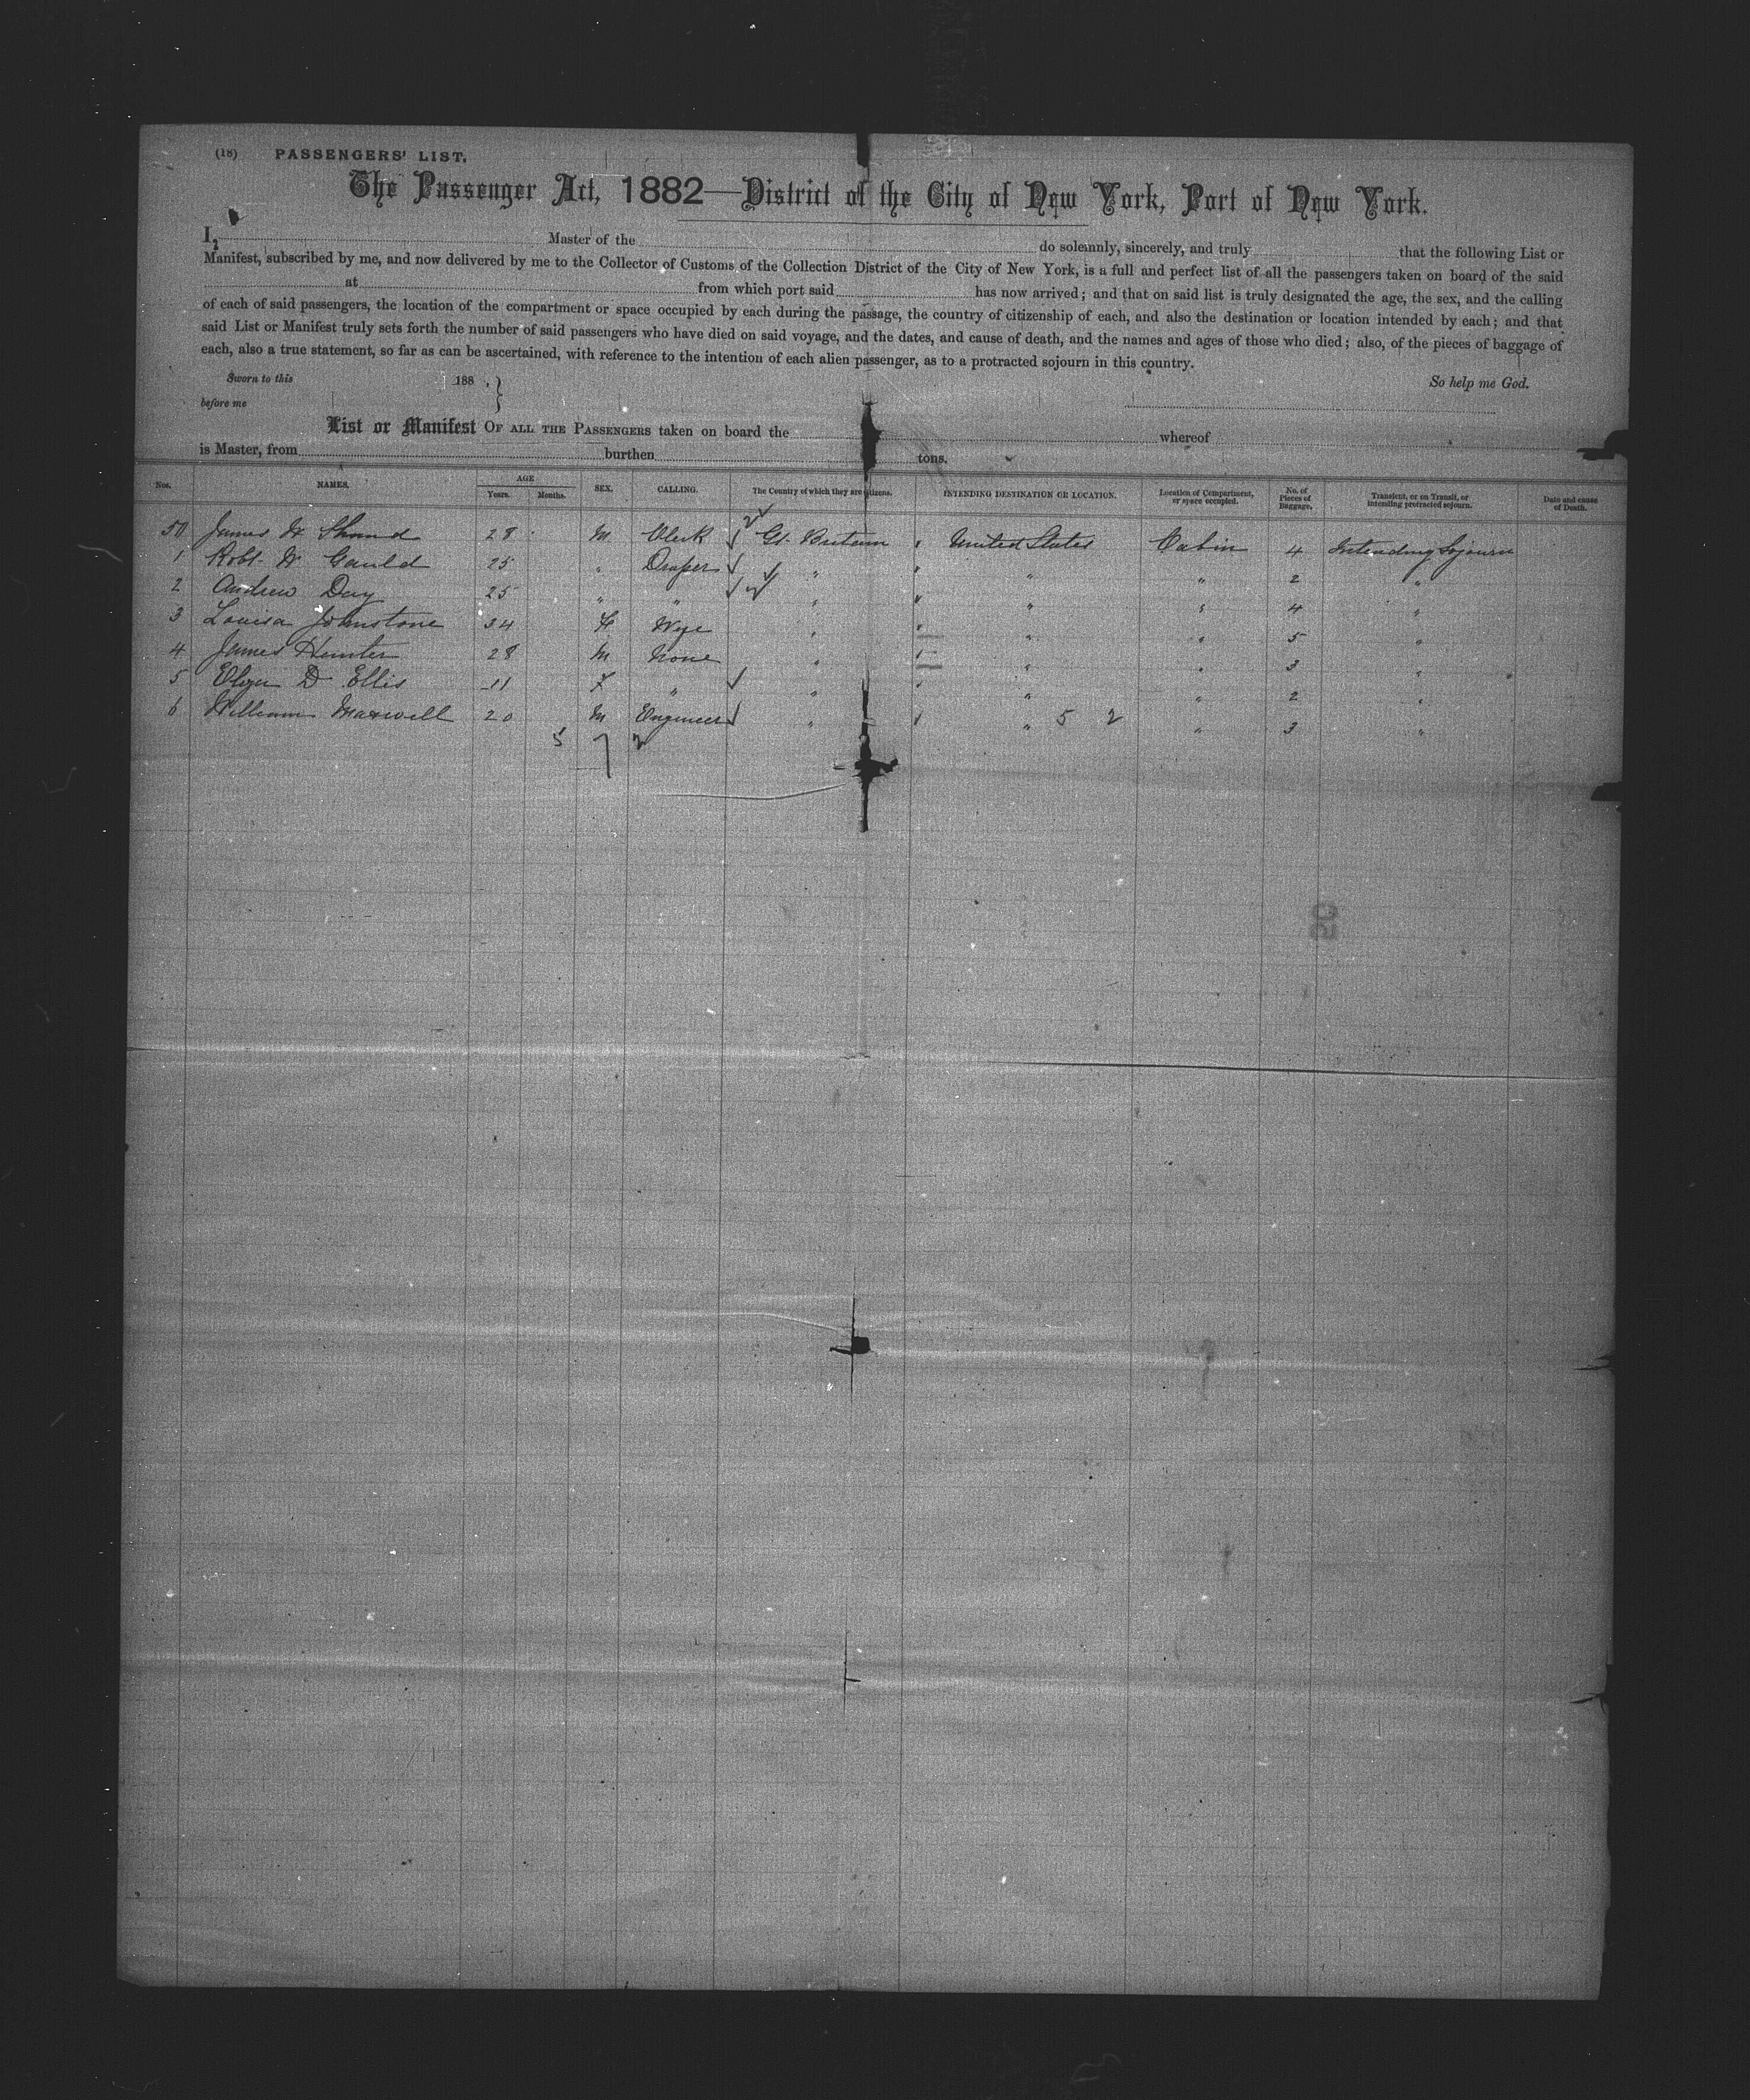 (18) PASSENGERS' LIST.
The Passenger Act, 1882—District of the City of New York, Port of New York.
I, Master of the do solemnly, sincerely, and truly that the following List or
Manifest, subscribed by me, and now delivered by me to the Collector of Customs of the Collection District of the City of New York, is a full and perfect list of all the passengers taken on board of the said
at from which port said has now arrived; and that on said list is truly designated the age, the sex, and the calling
of each of said passengers, the location of the compartment or space occupied by each during the passage, the country of citizenship of each, and also the destination or location intended by each; and that
said List or Manifest truly sets forth the number of said passengers who have died on said voyage, and the dates, and cause of death, and the names and ages of those who died; also, of the pieces of baggage of
each, also a true statement, so far as can be ascertained, with reference to the intention of each alien passenger, as to a protracted sojourn in this country.
Sworn to this 188 , } So help me God.
before me
List or Manifest OF ALL THE PASSENGERS taken on board the whereof
is Master, from burthen tons.
Nos. NAMES. AGE Years. Months. SEX. CALLING. The Country of which they are citizens. INTENDING DESTINATION OR LOCATION. Location of Compartment, or space occupied. No. of Pieces of Baggage. Transient, or on Transit, or intending protracted sojourn. Date and cause of Death.
James W Shand 28 M Clerk Gt. Britain United States Cabin 4 Intending Sojourn
1 Robt. W Gauld 25 " Draper " " " 2 "
2 Andrew Day 25 " " " " " 4 "
3 Louisa Johnstone 34 F Wife " " " 5 "
4 James Hunter 28 M None " " " 3 "
5 D Ellis 11 F " " " " 2 "
6 William Maxwell 20 M Engineer " " 5 2 " 3 "
5 7 2